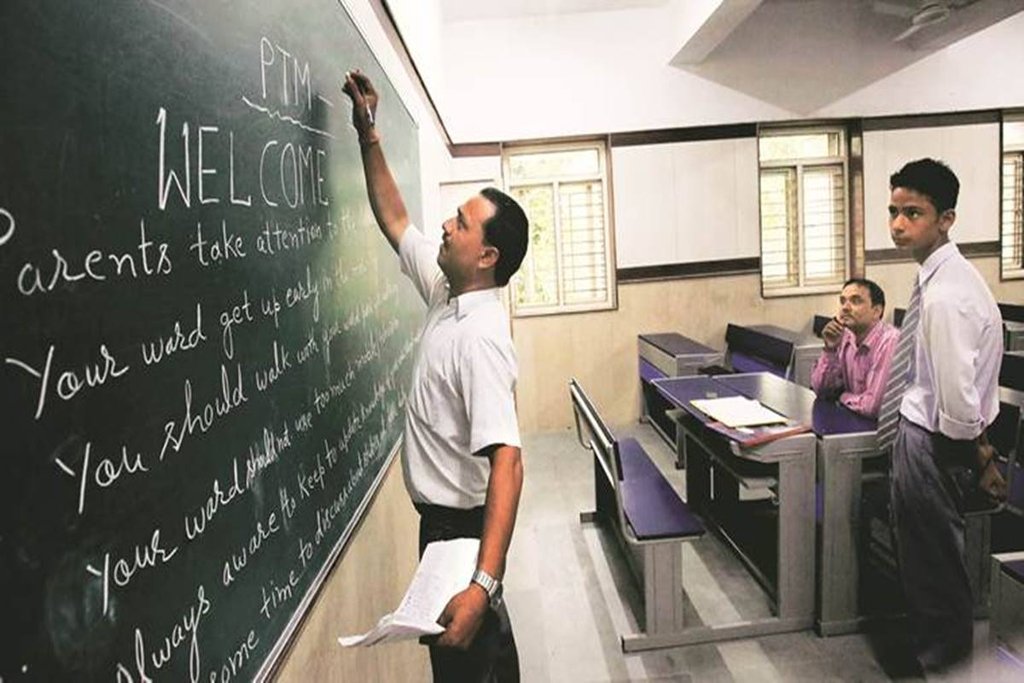 PTM -
WELCOME
Parents take attention to the
Your ward get up early in the
You should walk with your ward
Your ward should not use too much mobile
Always aware to keep to update
some time to discuss about